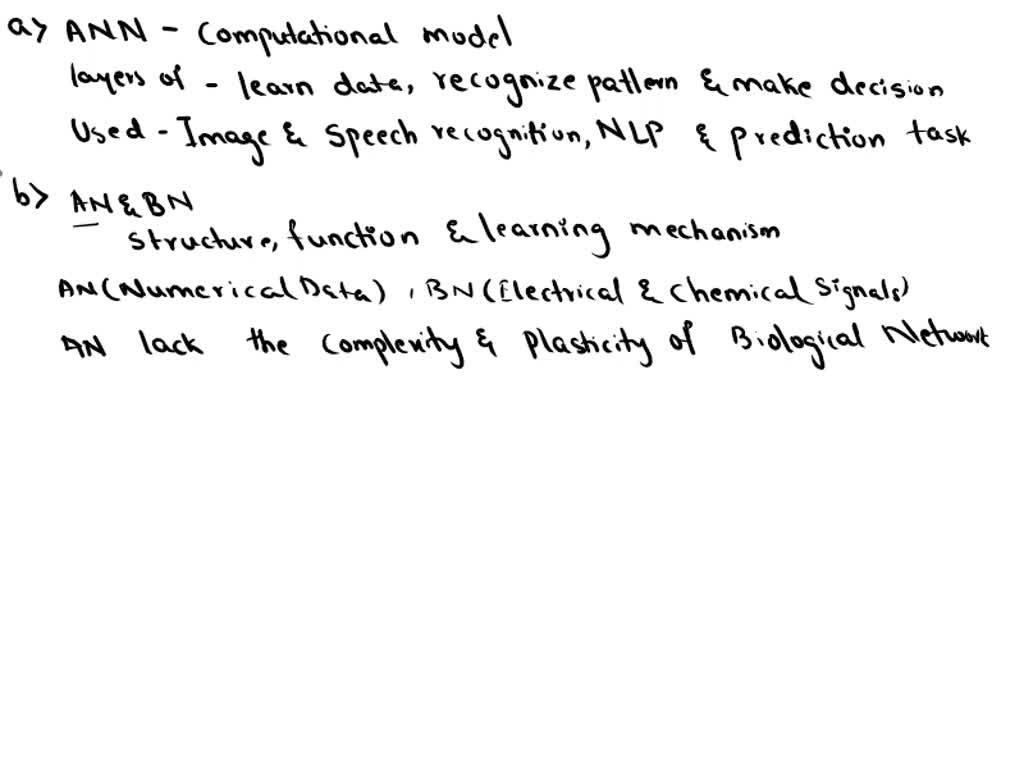 a> ANN - Computational model
layers of - learn data, recognize pattern & make decision
Used - Image & Speech recognition, NLP & prediction task
b> AN & BN
structure, function & learning mechanism
AN (Numerical Data), BN (Electrical & Chemical Signals)
AN lack the complexity & Plasticity of Biological Network